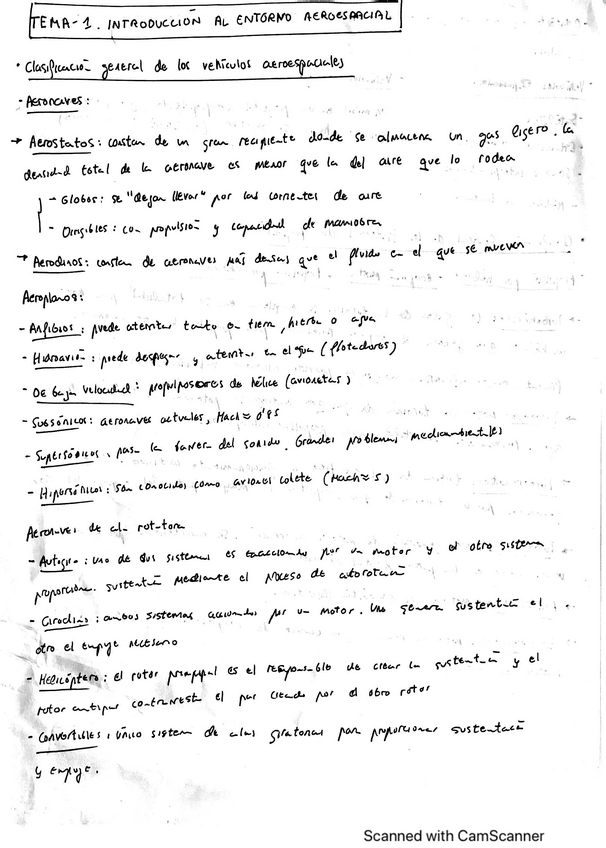 TEMA-1. INTRODUCCIÓN AL ENTORNO AEROESPACIAL
• Clasificación general de los vehículos aeroespaciales
- Aeronaves:
→ Aerostatos: constan de un gran recipiente donde se almacena un gas ligero. La
densidad total de la aeronave es menor que la del aire que lo rodea
- Globos: se "dejan llevar" por las corrientes de aire
- Dirigibles: con propulsión y capacidad de maniobra
→ Aerodinos: constan de aeronaves más densas que el fluido en el que se mueven
Aeroplanos:
- Anfibios: puede aterrizar tanto en tierra, hierba o agua
- Hidroavión: puede despegar y aterrizar en el agua (flotadores)
- De baja velocidad: propulsores de hélice (avionetas)
- Subsónicos: aeronaves actuales, Mach ≈ 0'85
- Supersónicos, pasan la barrera del sonido. Grandes problemas medioambientales
- Hipersónicos: son conocidos como aviones cohete (Mach ≈ 5)
Aeronaves de ala rotatoria
- Autogiro: uno de sus sistemas es accionado por un motor y el otro sistema
proporciona sustentación mediante el proceso de autorotación
- Girodino: ambos sistemas accionados por un motor. Uno genera sustentación el
otro el empuje necesario
- Helicóptero: el rotor principal es el responsable de crear la sustentación y el
rotor antipar contrarresta el par creado por el otro rotor
- Convertibles: único sistema de alas giratorias para proporcionar sustentación
y empuje.
Scanned with CamScanner